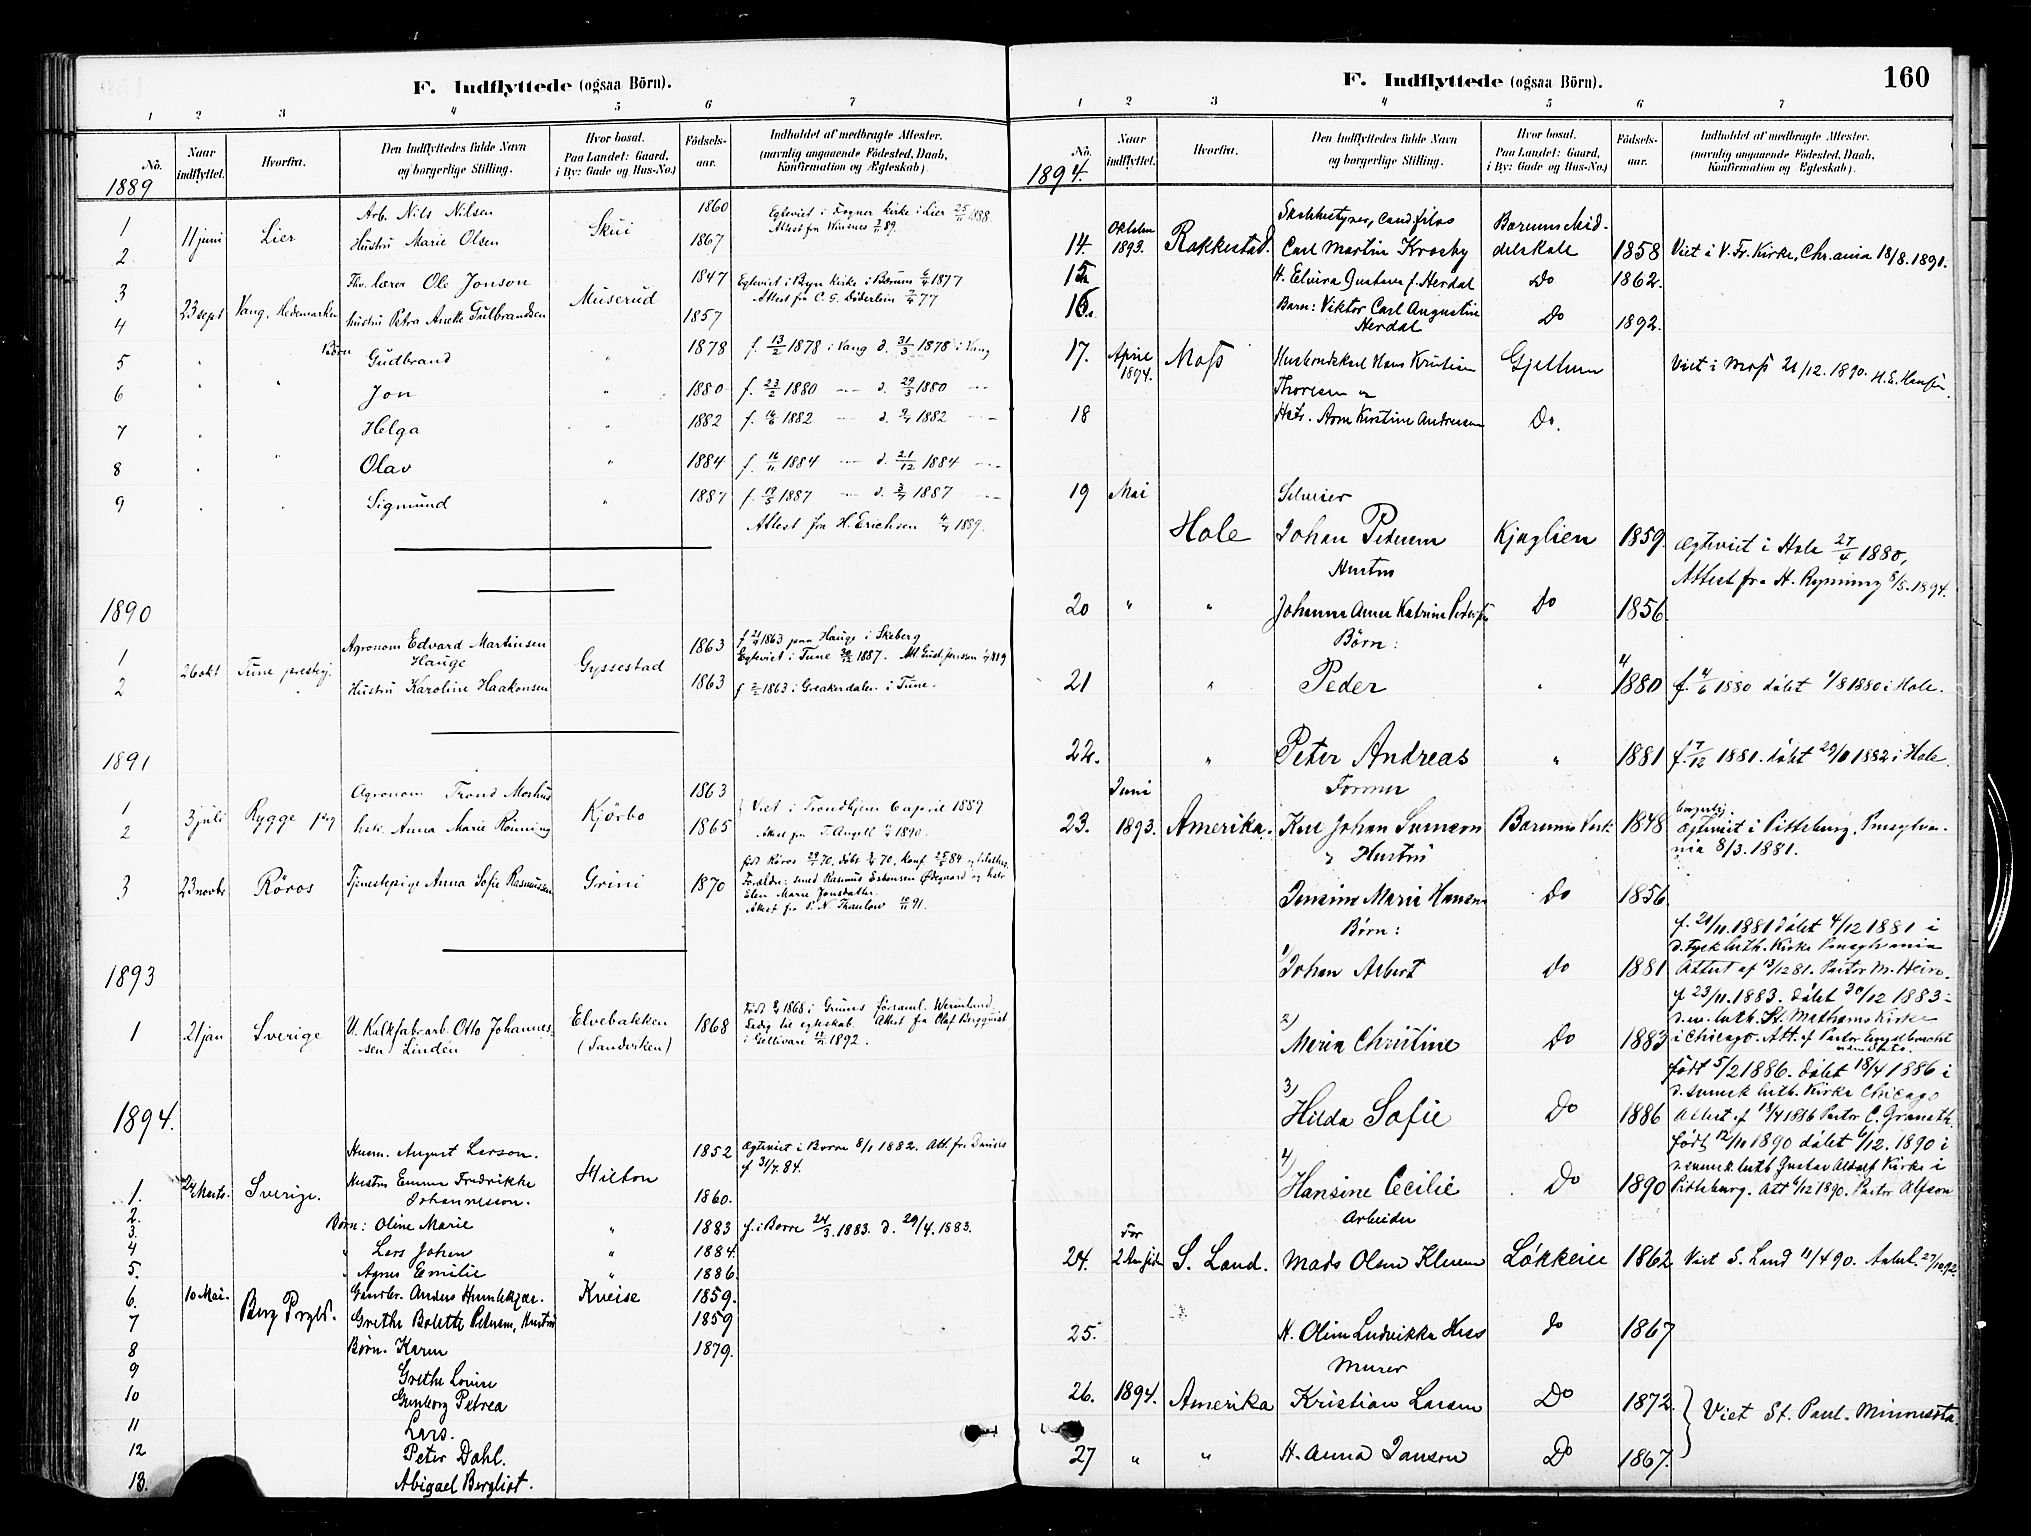 F. Indflyttede (ogsaa Börn).
1 2 3 4 5 6 7
No. Naar indflyttet. Hvorfra. Den Indflyttedes fulde Navn og borgerlige Stilling. Hvor bosat. Paa Landet: Gaard, i By: Gade og Hus-No.) Födsels-aar. Indholdet af medbragte Attester. (navnlig angaaende Födested, Daab, Konfirmation og Ægteskab)
1889
1 11 juni Lier Arb. Nils Nilsen Skui 1860 Egteviet i Frogner kirke i Lier 25/11 1888.
2 Hustru Marie Olsen 1867
3 23 sept Vang, Hedemarken lærer Ole Jonson Muserud 1847 Egteviet i Bryn kirke i Bærum 1877
Attest fra C. G. Döderlein 77
4 hustru Petra Anette Gulbrandsen 1857
5 Börn Gudbrand " 1878 f. 13/2 1878 i Vang d. 31/3 1878 i Vang
6 " " Jon " 1880 f. 23/2 1880 — d. 29/3 1880 —
7 " Helga " 1882 f. 16/6 1882 — d. 9/7 1882 —
8 " " Olav " 1884 f. 16/11 1884 — d. 21/12 1884 —
9 " " Sigmund " 1887 f. 19/5 1887 — d. 3/7 1887 —
Attest fra H. Erichsen 4/7 1889.
1890
1 26 okt Tune prestegj. Agronom Edvard Martinsen Hauge Gyssestad 1863 1863 paa Hauge i Skeberg
Egteviet i Tune 1887.
2 Hustru Karoline Haakonsen 1863 1863 i Greakerdalen i Tune.
1891
1 3 juli Rygge prg Agronom Trond Moshus Kjörbo 1863 Viet i Trondhjem 6 april 1889
2 hstr. Anna Marie Rönning 1865 Attest fra T. Angell 1890.
3 23 novbr Röros Tjenestepige Anna Sofie Rasmussen Grini 1870 født Röros 70, döbt 70, konf 84
Forældre: smed Rasmus Estensen Ødegaard og hstr
Elen Marie Jonsdatter.
Attest fra P. N. Thaulow 10/11 91.
1893
1 21 jan Sverige U. Kalkfabarb. Otto Johannessen Lindén Elvebakken (Sandviken) 1868 Född 1868 i Grums församl. Wermland.
Ledig til egteskab. Attest fra Olaf Bergquist
i Gellivare 12/12 1892.
1894.
1. 24 Marts. Sverige. Husm. August Larson. Hilton 1852 Ægteviet i Borre 8/1 1882. Att. fra
af 31/7. 84.
2. Hustru Emma Fredrikke Johannesson. 1860.
3. Børn: Oline Marie " 1883 f. i Borre 24/3. 1883. d. 29/4. 1883.
4 " Lars Johan " 1884.
5. " Agnes Emilie " 1886.
6. 10 Mai. Berg Prgld. Gaardbr. Anders Humlekjær. Kveise 1859.
7 Grethe Bolette Petersen, Hustru 1859
8 Børn. Karen 1879.
9 Grethe Lovise
10 Gunborg Petrea
11 Lars.
12 Peter Dahl.
13. Abigael Bergliot.
F. Indflyttede (ogsaa Börn).
160
1 2 3 4 5 6 7
No. Naar indflyttet. Hvorfra. Den Indflyttedes fulde Navn og borgerlige Stilling. Hvor bosat. Paa Landet: Gaard, i By: Gade og Hus-No.) Födsels-aar. Indholdet af medbragte Attester. (navnlig angaaende Födested, Daab, Konfirmation og Ægteskab).
1894.
14. Oktober 1893. Rakkestad. Skolebestyrer, cand. filos Carl Martin Krosby Bærums Middelskole 1858 Viet i V. Fr. Kirke, Chr.ania 18/8. 1891.
15 H. Elvira Gustava f. Herdal Do 1862.
16. Barn: Viktor Carl Augustin Herdal Do 1892.
17. April 1894. Moss Husbondskarl Hans Kristian Thoresen Gjettum Viet i Moss 21/12. 1890. H. E. Hansen.
18 Hstr. Anne Kirstine Andresen Do.
19 Mai Hole Selveier Johan Pedersen Kjaglien 1859. Ægteviet i Hole 27/4 1880,
Attest fra H. Rynning 8/5. 1894.
20 " " Hustru Johanne Anne Katrine Do 1856.
Børn:
21 " Peder " 1880 f. 4/6 1880 døbt 1/8 1880 i Hole.
22. " Peter Andreas " 1881 f. 7/12 1881. døbt 1882 i Hole.
23. Juni 1893. Amerika. Former Karl Johan Bærums Verk 1848 borgerlig
Ægteviet i Pittsburg, Pensylvania 8/3. 1881.
& Hustru
Jensine Marie Hansen Do 1856.
Børn:
1) Johan Albert Do 1881 f. 21/11. 1881 døbt 4/12 1881 i
d. Tysk luth. Kirke Pensylvania
Attest af 13/12 81. Pastor M. Hein.
2) Maria Christine Do 1883 f. 23/11. 1883. døbt 30/12 1883 i
d. ev. luth. St. Mathæus Kirke
i Chicago. Att. af Pastor Engelbrecht
uden Dato.
3) Hilda Sofie Do 1886 født 5/2 1886. døbt 18/4 1886 i
d. svensk luth. Kirke Chicago
Attest af 18/4 1886 Pastor C. Granath
4) Hansine Cecilie Do 1890 født 12/10 1890 døbt 6/12. 1890 i
svensk luth Gustav Adolf Kirke i
Pittsburg. Att 6/12 1890. Pastor Alfson
24. For 2 Aar siden S. Land. Arbeider Mads Olsen Løkkeie 1862 Viet S. Land 11/4 90.
25. H. Oline Ludvikka do 1867
26. 1894. Amerika Murer Kristian Larsen Do 1872. } Viet St. Paul. Minnesota
27 " " H. Anna Janson Do 1867.